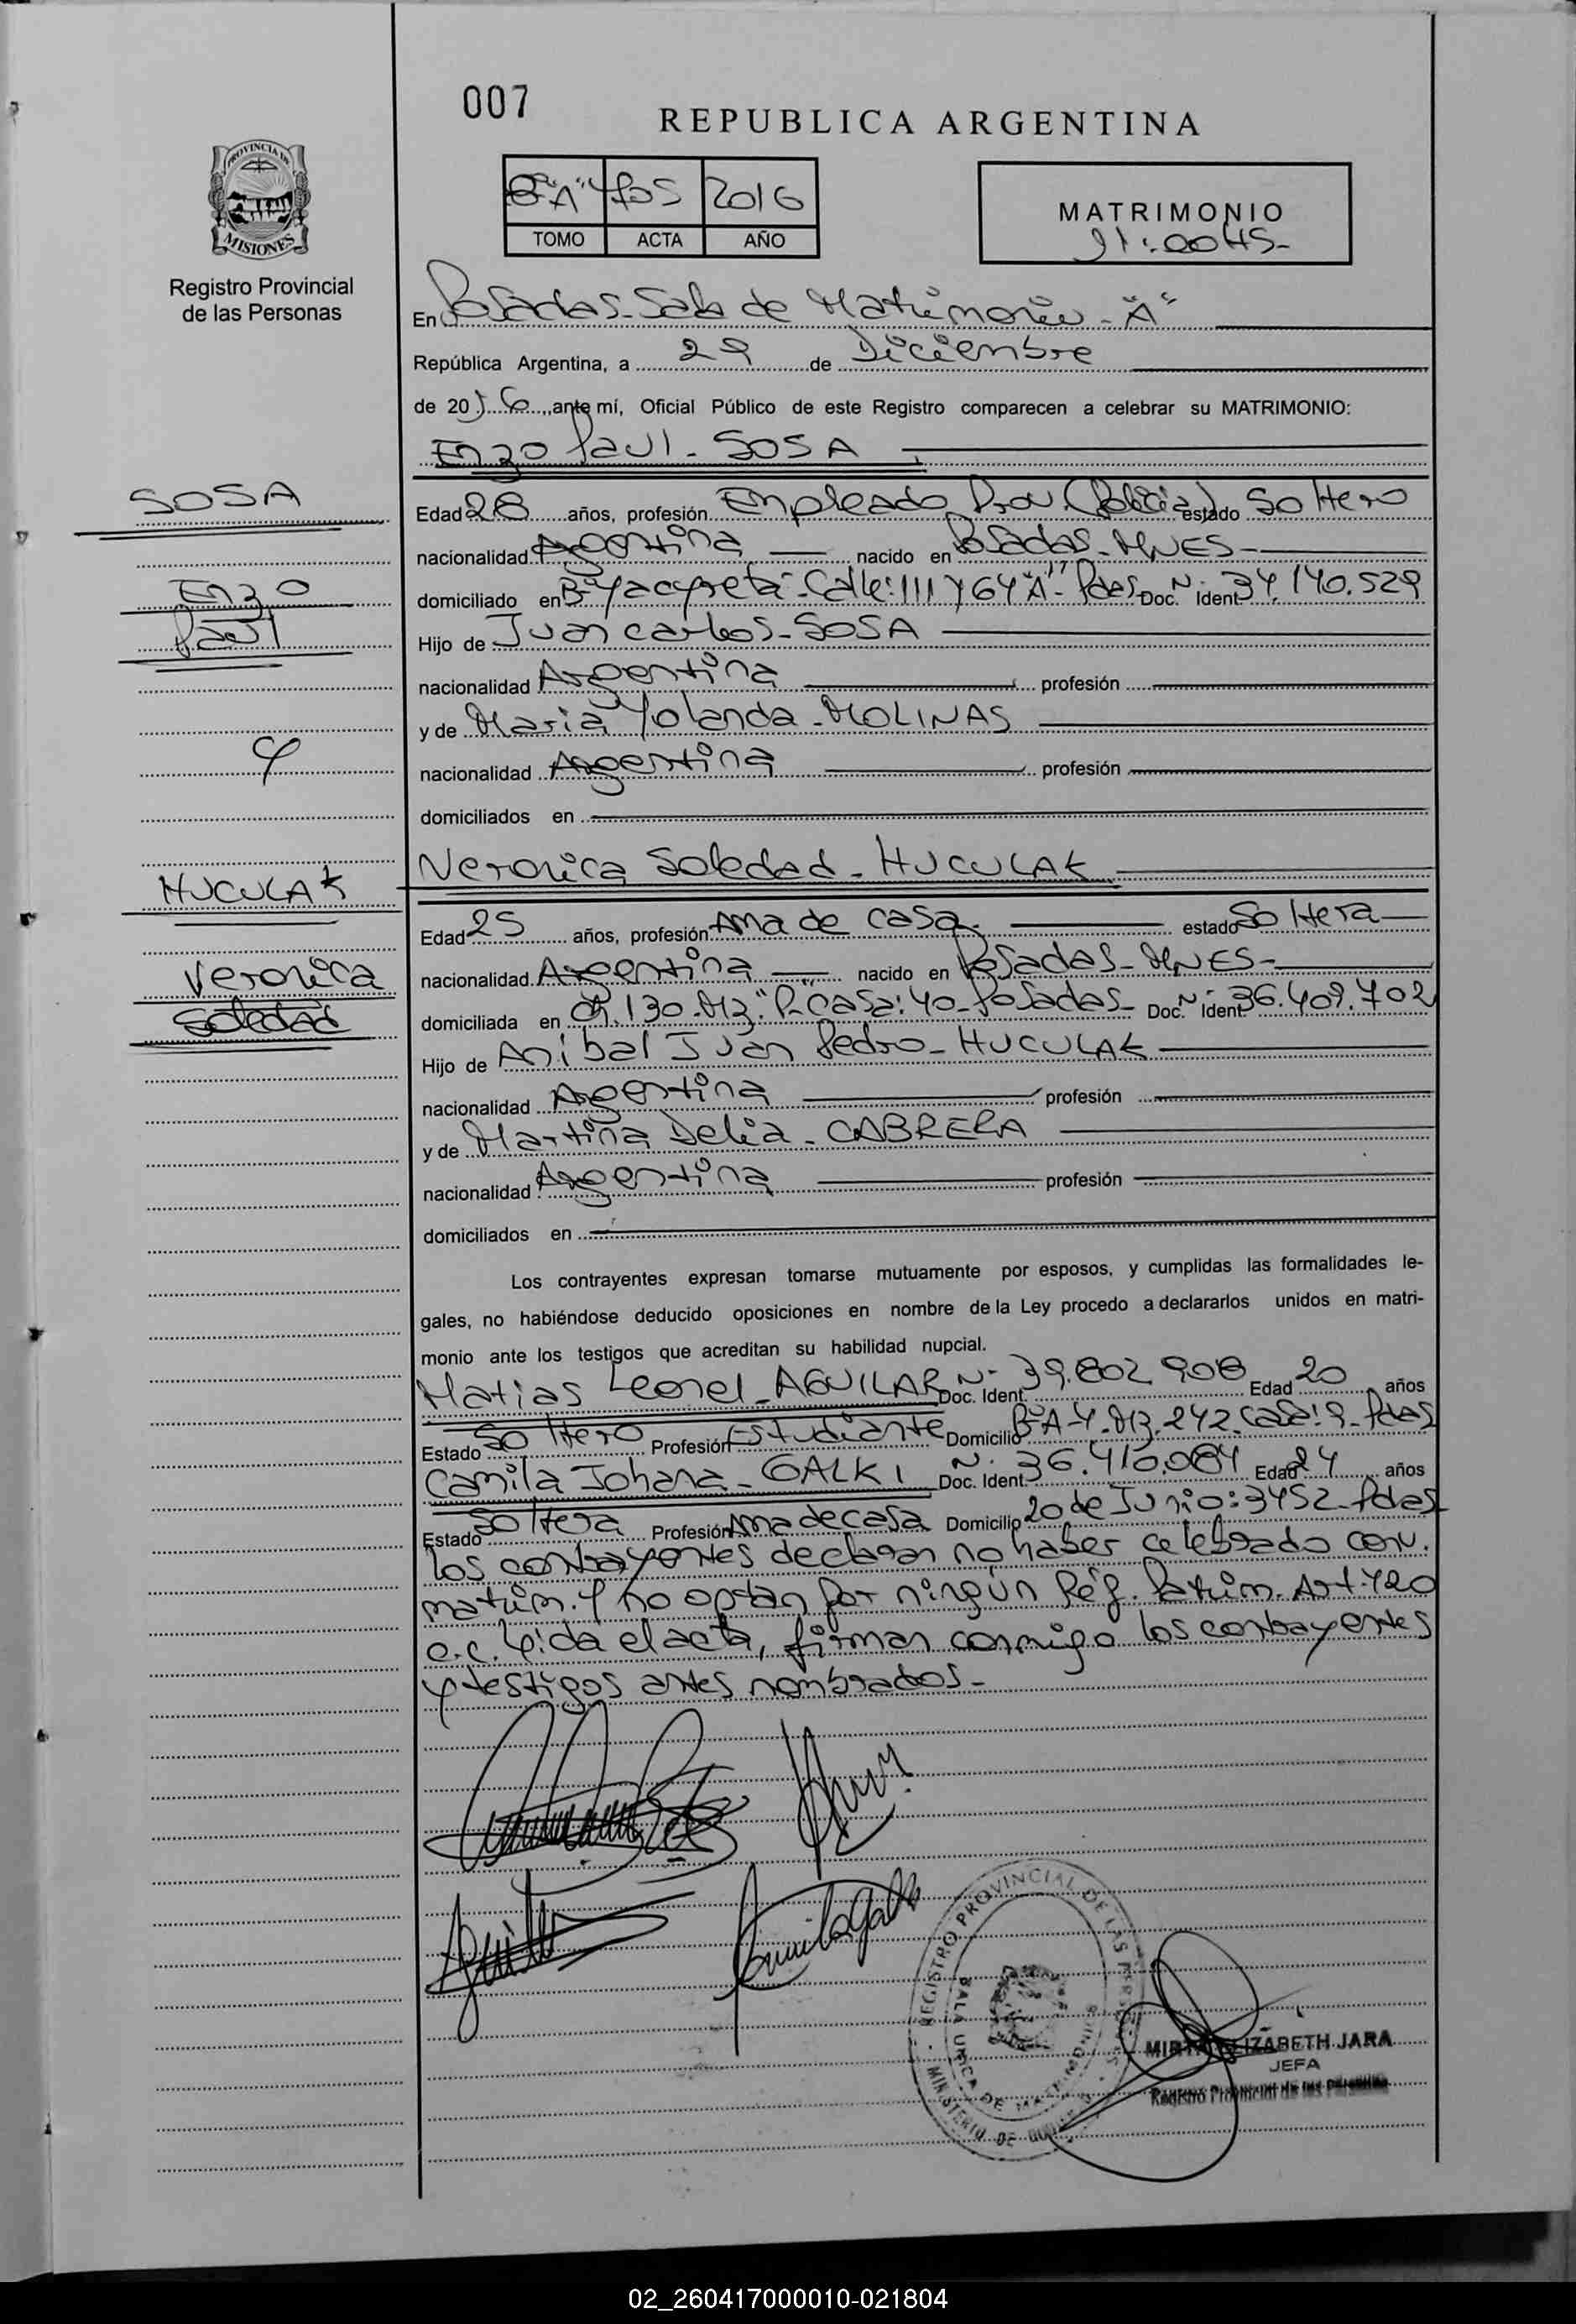 007
REPUBLICA ARGENTINA
8º "A" 705 2016
TOMO ACTA AÑO
MATRIMONIO
:00 HS-
PROVINCIA DE
MISIONES
Registro Provincial
de las Personas
En Posadas- Sala de Matrimonio - "A"
República Argentina, a 29 de Diciembre
de 2016, ante mí, Oficial Público de este Registro comparecen a celebrar su MATRIMONIO:
Enzo Paul - SOSA
SOSA
Edad 28 años, profesión Empleado Prov. (Policia) estado Soltero
nacionalidad Argentina nacido en Posadas - MNES-
Enzo
domiciliado en Bº Yacyreta - Calle: 111 y 64 "A" - Pdas. Doc. Nº Ident. 34.140.529
Paul
Hijo de Juan Carlos - SOSA
nacionalidad Argentina profesión
y de Maria Yolanda - MOLINAS
y
nacionalidad Argentina profesión
domiciliados en
Veronica Soledad - HUCULAK
HUCULAK
Edad 25 años, profesión Ama de casa. estado Soltera
nacionalidad Argentina nacido en Posadas - MNES-
Veronica
domiciliada en Ch. 130 - Mz. "P" - Casa: 40 - Posadas - Doc. Nº Ident. 36.409.702
Soledad
Hijo de Anibal Juan Pedro - HUCULAK
nacionalidad Argentina profesión
y de Martina Delia - CABRERA
nacionalidad Argentina profesión
domiciliados en
Los contrayentes expresan tomarse mutuamente por esposos, y cumplidas las formalidades le-
gales, no habiéndose deducido oposiciones en nombre de la Ley procedo a declararlos unidos en matri-
monio ante los testigos que acreditan su habilidad nupcial.
Matias Leonel - AGUILAR Doc. Nº Ident. 39.802.908 Edad 20 años
Estado Soltero Profesión Estudiante Domicilio Bº A-4 - Mz. 242 - Casa: 9 - Pdas
Camila Johana - GALKI Doc. Nº Ident. 36.410.084 Edad 24 años
Estado Soltera Profesión Ama de casa Domicilio 20 de Junio: 3452 - Pdas
Los contrayentes declaran no haber celebrado conv.
matrim. y no optan por ningún Rég. Patrim. Art. 420
c.c. Leida el acta, firman conmigo los contrayentes
y testigos antes nombrados-
REGISTRO PROVINCIAL DE LAS PERSONAS
SALA UNICA DE
MINISTERIO DE
MIRTA ELIZABETH JARA
JEFA
Registro Provincial de las Personas
02_260417000010-021804